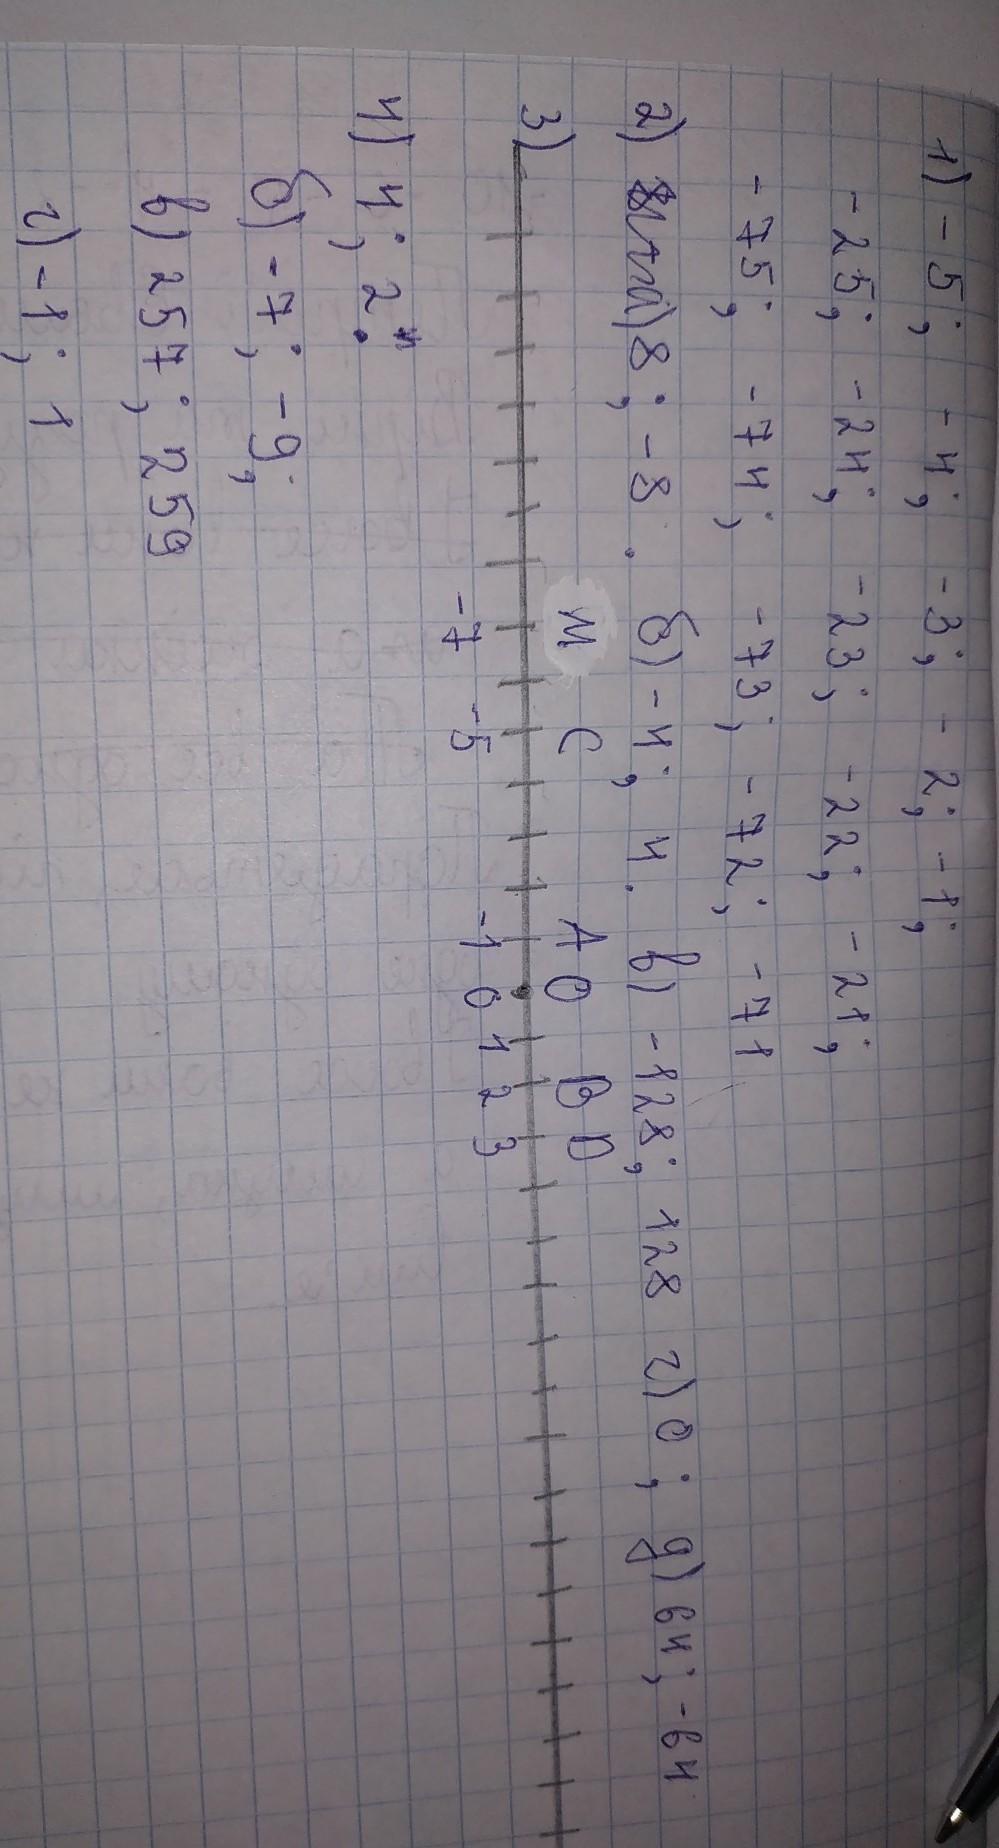 1) -5; -4; -3; -2; -1;
-25; -24; -23; -22; -21;
-75; -74; -73; -72; -71
2) а) 8; -8. б) -4; 4. в) -128; 128 г) 0; д) 64; -64
3) М С А О В D
-7 -5 -1 0 1 2 3
4) 4; 2.
б) -7; -9;
в) 257; 259
г) -1; 1